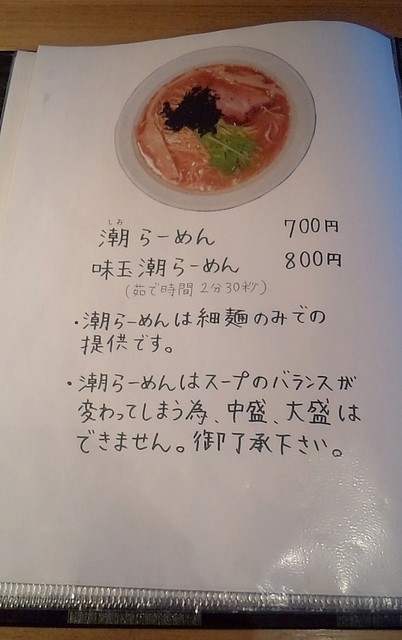 しお
潮らーめん 700円
味玉潮らーめん 800円
(茹で時間 2分30秒)
・潮らーめんは細麺のみでの
提供です。
・潮らーめんはスープのバランスが
変わってしまう為、中盛、大盛は
できません。御了承下さい。